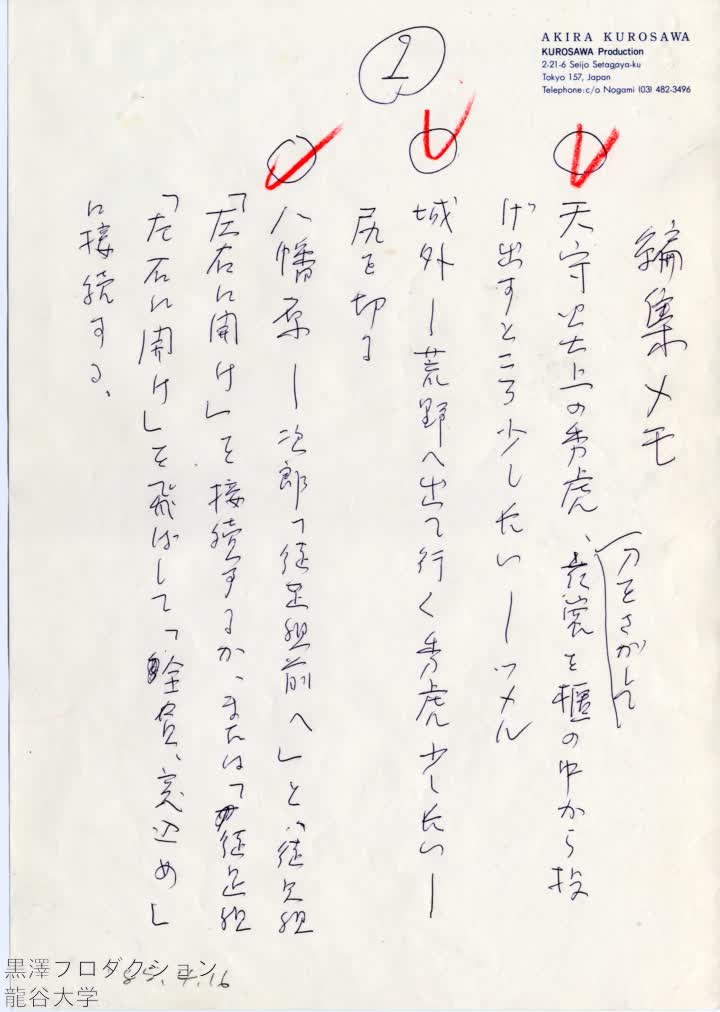 AKIRA KUROSAWA
KUROSAWA Production
2-21-6 Seijo Setagaya-ku
Tokyo 157, Japan
Telephone: c/o Nogami (03) 482-3496
2
編集メモ
刀をさがして
天守四土上の秀虎、衣裳を櫃の中から投
げ出すところ少し長い―ツメル
城外―荒野へ出て行く秀虎少し長い―
尻を切る
八幡原―次郎「徒足組前へ」と、「徒足組
左右に開け」を接続するか、または「徒足組
左右に開け」を飛ばして「全員、玉込め」
に接続する。
85.4.16
黒澤プロダクション
龍谷大学